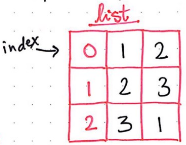 list
index → 0 1 2
1 2 3
2 3 1